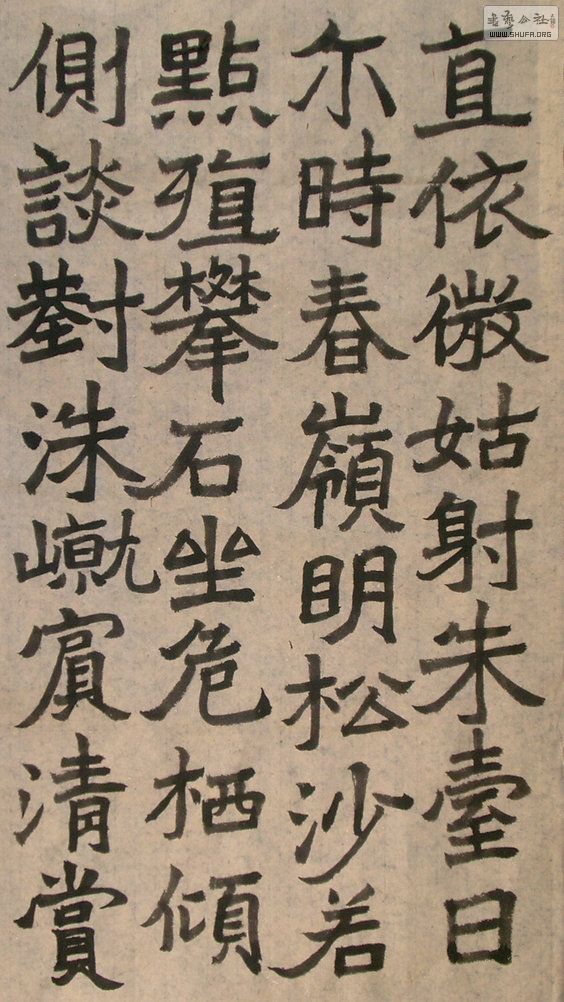 書藝公社
WWW.SHUFA.ORG
直依微姑射朱臺日
尔時春嶺明松沙若
點殖攀石坐危栖傾
側談對洙賓清賞